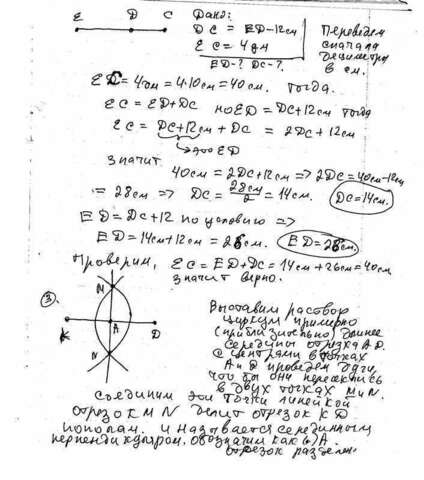 E D C Дано:
DC = ED-12см
EC = 4дм
ED-? DC-?
Переведем
сначала
дециметры
в см.
EC = 4дм = 4·10см = 40см. Тогда.
EC = ED+DC но ED = DC+12см тогда
EC = DC+12см + DC = 2DC+12см
это ED
Значит
40см = 2DC+12см => 2DC = 40см-12см
= 28см => DC = 28см/2 = 14см. DC=14см.
ED = DC+12 по условию =>
ED = 14см+12см = 26см. ED=26см.
Проверим, EC = ED+DC = 14см+26см = 40см
значит верно.
3.
M
K A D
N
Выставим раствор
циркуля примерно
(приблизительно) длиннее
середины отрезка
с центрами в точках
и D проведем дуги,
что бы они пересеклись
в двух точках M и N.
Соединим эти точки линейкой
отрезок MN делит отрезок KD
пополам. и называется серединным
перпендикуляром, обозначим как A.
отрезок разделен